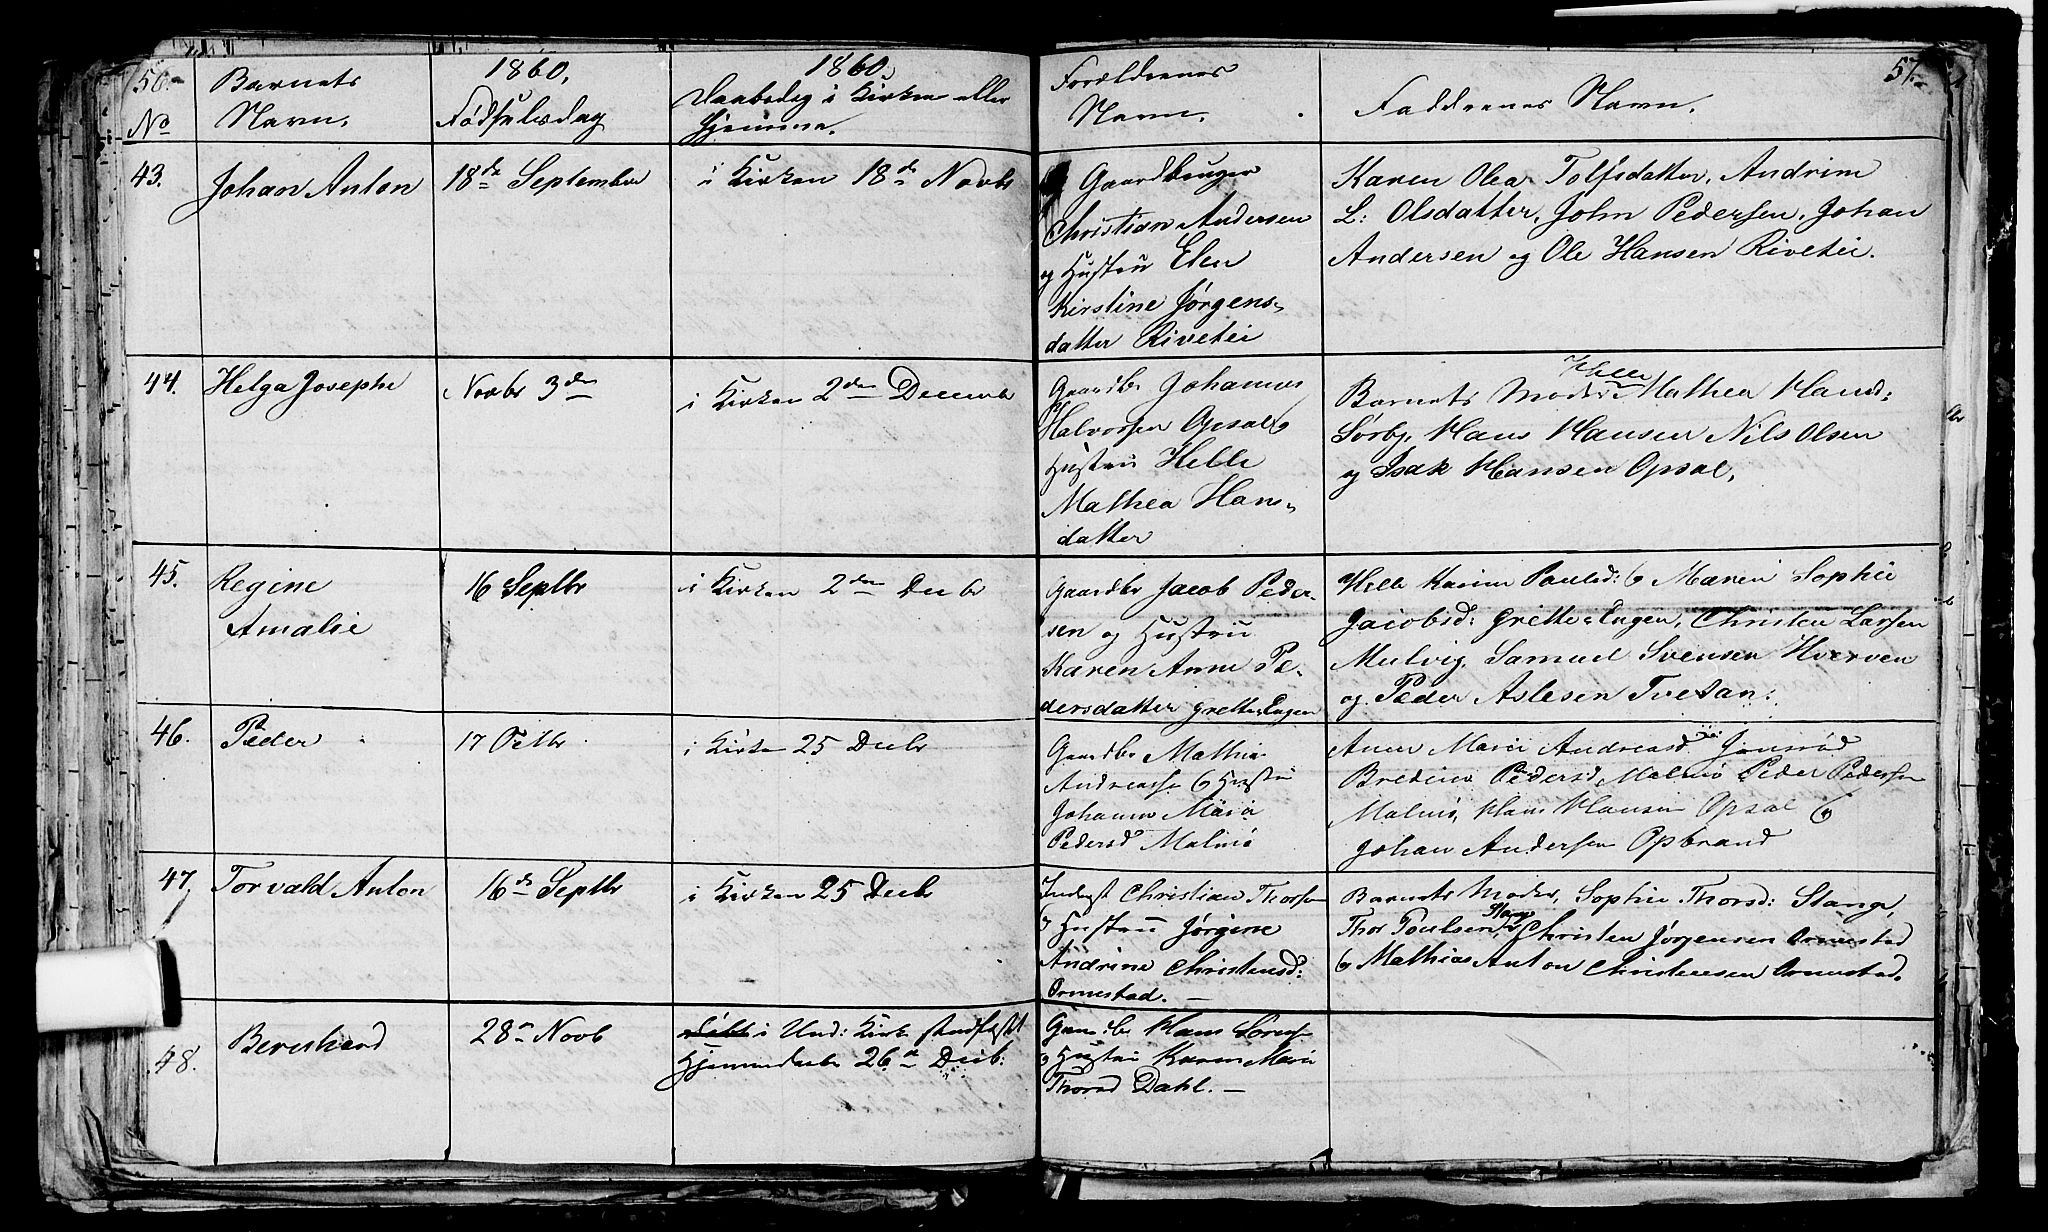 56.
No
Barnets
Navn.
1860,
Födselsdag
1860.
Daabsdag i Kirken eller
hjemme.
Forældrenes
Navn.
Faddernes Navn.
57.
43.
Johan Anton
18de September
i Kirken 18de Novbr
Gaardbruger
Christian Andersen
og Hustru Elen
Kirstine Jørgens-
datter Rivetei
Karen Olea Tolfsdatter, Andrine
L: Olsdatter, John Pedersen, Johan
Andersen og Ole Hansen Rivetei.
44.
Helga Josephe
Novbr 3den
i Kirken 2den Decembr
Gaardbr Johannes
Halvorsen Opsal og
Hustru Helle
Mathea Hans-
datter
Barnets Moder, Helle Mathea Hansd:
Sørby, Hans Hansen Nils Olsen
og Isak Hansen Opsal.
45.
Regine
Amalie
16 Septbr
i Kirken 2den Decbr
Gaardbr Jacob Peder-
sen og Hustru
Karen Anne Pe-
dersdatter Grette-Engen
Helle Karine Paulsd: og Maren Sophie
Jacobsd: Grette-Engen, Christen Larsen
Melvig, Samuel Svensen Hverven
og Peder Aslesen Tvetan.
46.
Peder
17 Octbr
i Kirken 25 Decbr
Gaardbr Mathis
Andreassen og Hustru
Johanne Marie
Pedersd Malmö
Anne Marie Andreasd Jonsrød
Bredine Pedersd, Malmö Peder Pedersen
Malmö, Hans Hansen Opsal og
Johan Andersen Opbrand
47.
Torvald Anton
16de Septbr
i Kirken 25 Decbr
Inderst Christian Thorsen
og Hustru Jørgine
Andrine Christensd:
Ormestad. —
Barnets Moder, Sophie Thorsd: Stange,
Thor Poulsen Stange, Christen Jørgensen Ormestad
og Mathias Anton Christensen Ormestad.
48.
Bernhard
28de Novb
i Und: Kirke stadfæstet
Hjemmedaab 26de Decb:
Gaardbr Hans Sörensen
og Hustru Karen Marie
Thorsd Dahl. —